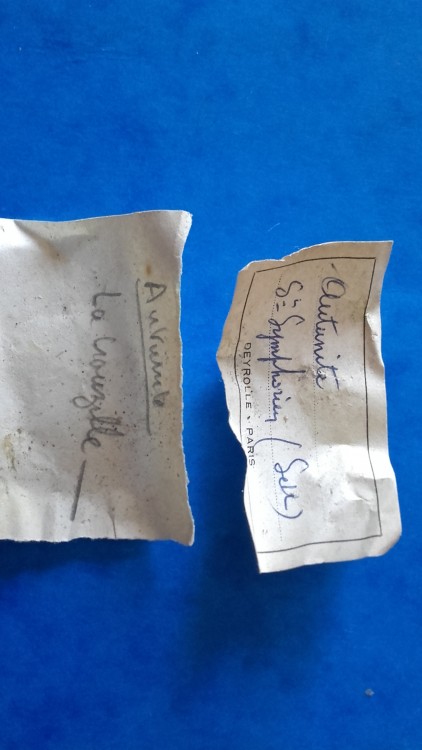 Autunite
La Crouzille
Autunite
St Symphorien (S&L)
DEYROLLE - PARIS